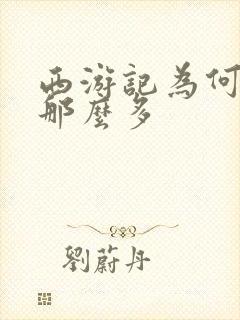 西游記為何
那麼多
劉蔚丹